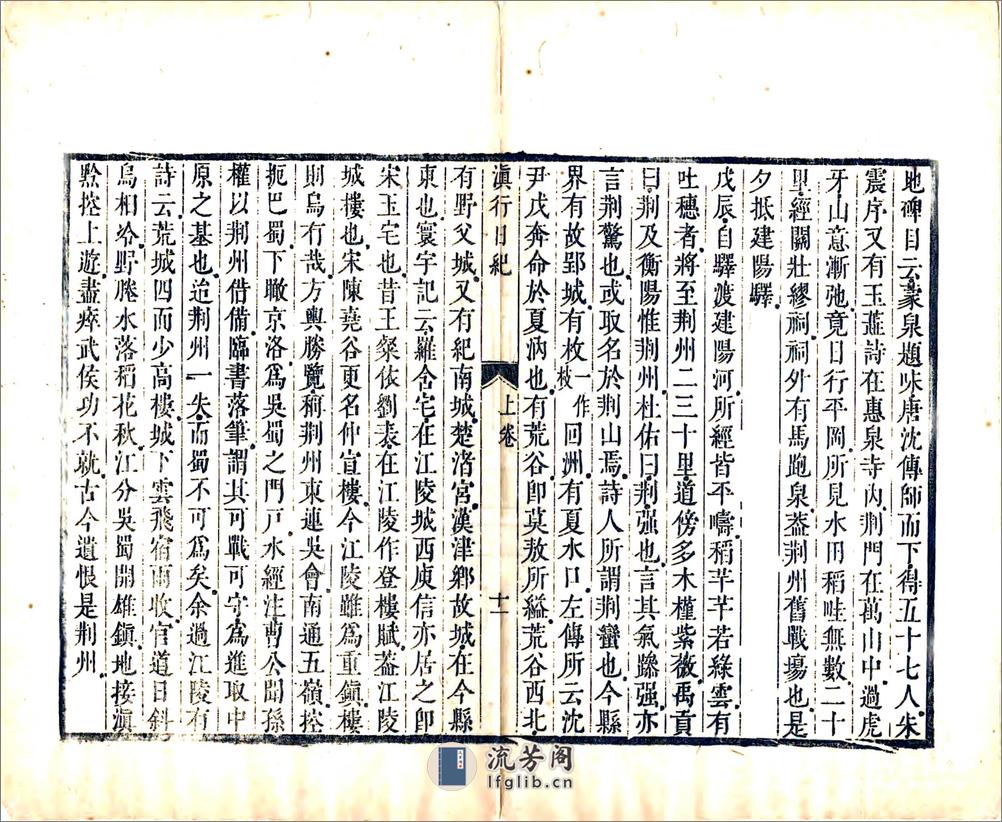 地碑目云蒙泉題咏唐沈傳師而下得五十七人朱
震序又有玉蘂詩在惠泉寺內荆門在萬山中過虎
牙山意漸弛竟日行平岡所見水田稻畦無數二十
里經關壯繆祠祠外有馬跑泉葢荆州舊戰塲也是
夕抵建陽驛
戊辰自驛渡建陽河所經皆平疇稻芊芊若綠雲有
吐穗者將至荆州二三十里道傍多木槿紫薇禹貢
曰荆及衡陽惟荆州杜佑曰荆强也言其氣躁强亦
言荆驚也或取名於荆山焉詩人所謂荆蠻也今縣
界有故郢城有枚一作枝回洲有夏水口左傳所云沈
尹戌奔命於夏汭也有荒谷卽莫敖所縊荒谷西北
滇行日紀 上卷 十一
有野父城又有紀南城楚渚宮漢津鄉故城在今縣
東也寰宇記云羅含宅在江陵城西庾信亦居之卽
宋玉宅也昔王粲依劉表在江陵作登樓賦葢江陵
城樓也宋陳堯谷更名仲宣樓今江陵雖爲重鎭樓
則烏有哉方輿勝覽稱荆州東連吳會南通五嶺控
扼巴蜀下瞰京洛爲吳蜀之門戸水經注曹公聞孫
權以荆州借備臨書落筆謂其可戰可守爲進取中
原之基也迨荆州一失而蜀不可爲矣余過江陵有
詩云荒城四面少高樓城下雲飛宿雨收官道日斜
烏相冷野塍水落稻花秋江分吳蜀開雄鎭地接滇
黔控上遊盡瘁武侯功不就古今遺恨是荆州
流芳阁
lfglib.cn